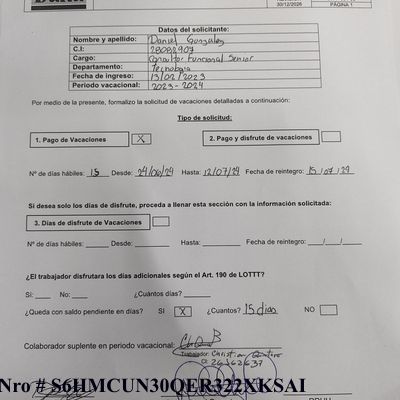 30/12/2026 PÁGINA 1
Datos del solicitante:
Nombre y apellido: Daniel Gonzalez
C.I: 28082907
Cargo: Consultor Funcional Senior
Departamento: Tecnologia
Fecha de ingreso: 13/02/2023
Periodo vacacional: 2023-2024
Por medio de la presente, formalizo la solicitud de vacaciones detalladas a continuación:
Tipo de solicitud:
1. Pago de Vacaciones X 2. Pago y disfrute de vacaciones
Nº de días hábiles: 15 Desde: 24/06/24 Hasta: 12/07/24 Fecha de reintegro: 15/07/24
Si desea solo los días de disfrute, proceda a llenar esta sección con la información solicitada:
3. Días de disfrute de Vacaciones
Nº de días hábiles: Desde: Hasta: Fecha de reintegro: / /
¿El trabajador disfrutara los días adicionales según el Art. 190 de LOTTT?
Sí: No: ¿Cuántos días?
¿Queda con saldo pendiente en días? SI X ¿Cuantos? 15 dias NO
Colaborador suplente en periodo vacacional:
Trabajador: Christian
Nro # S6HMCUN30QER322XKSAI